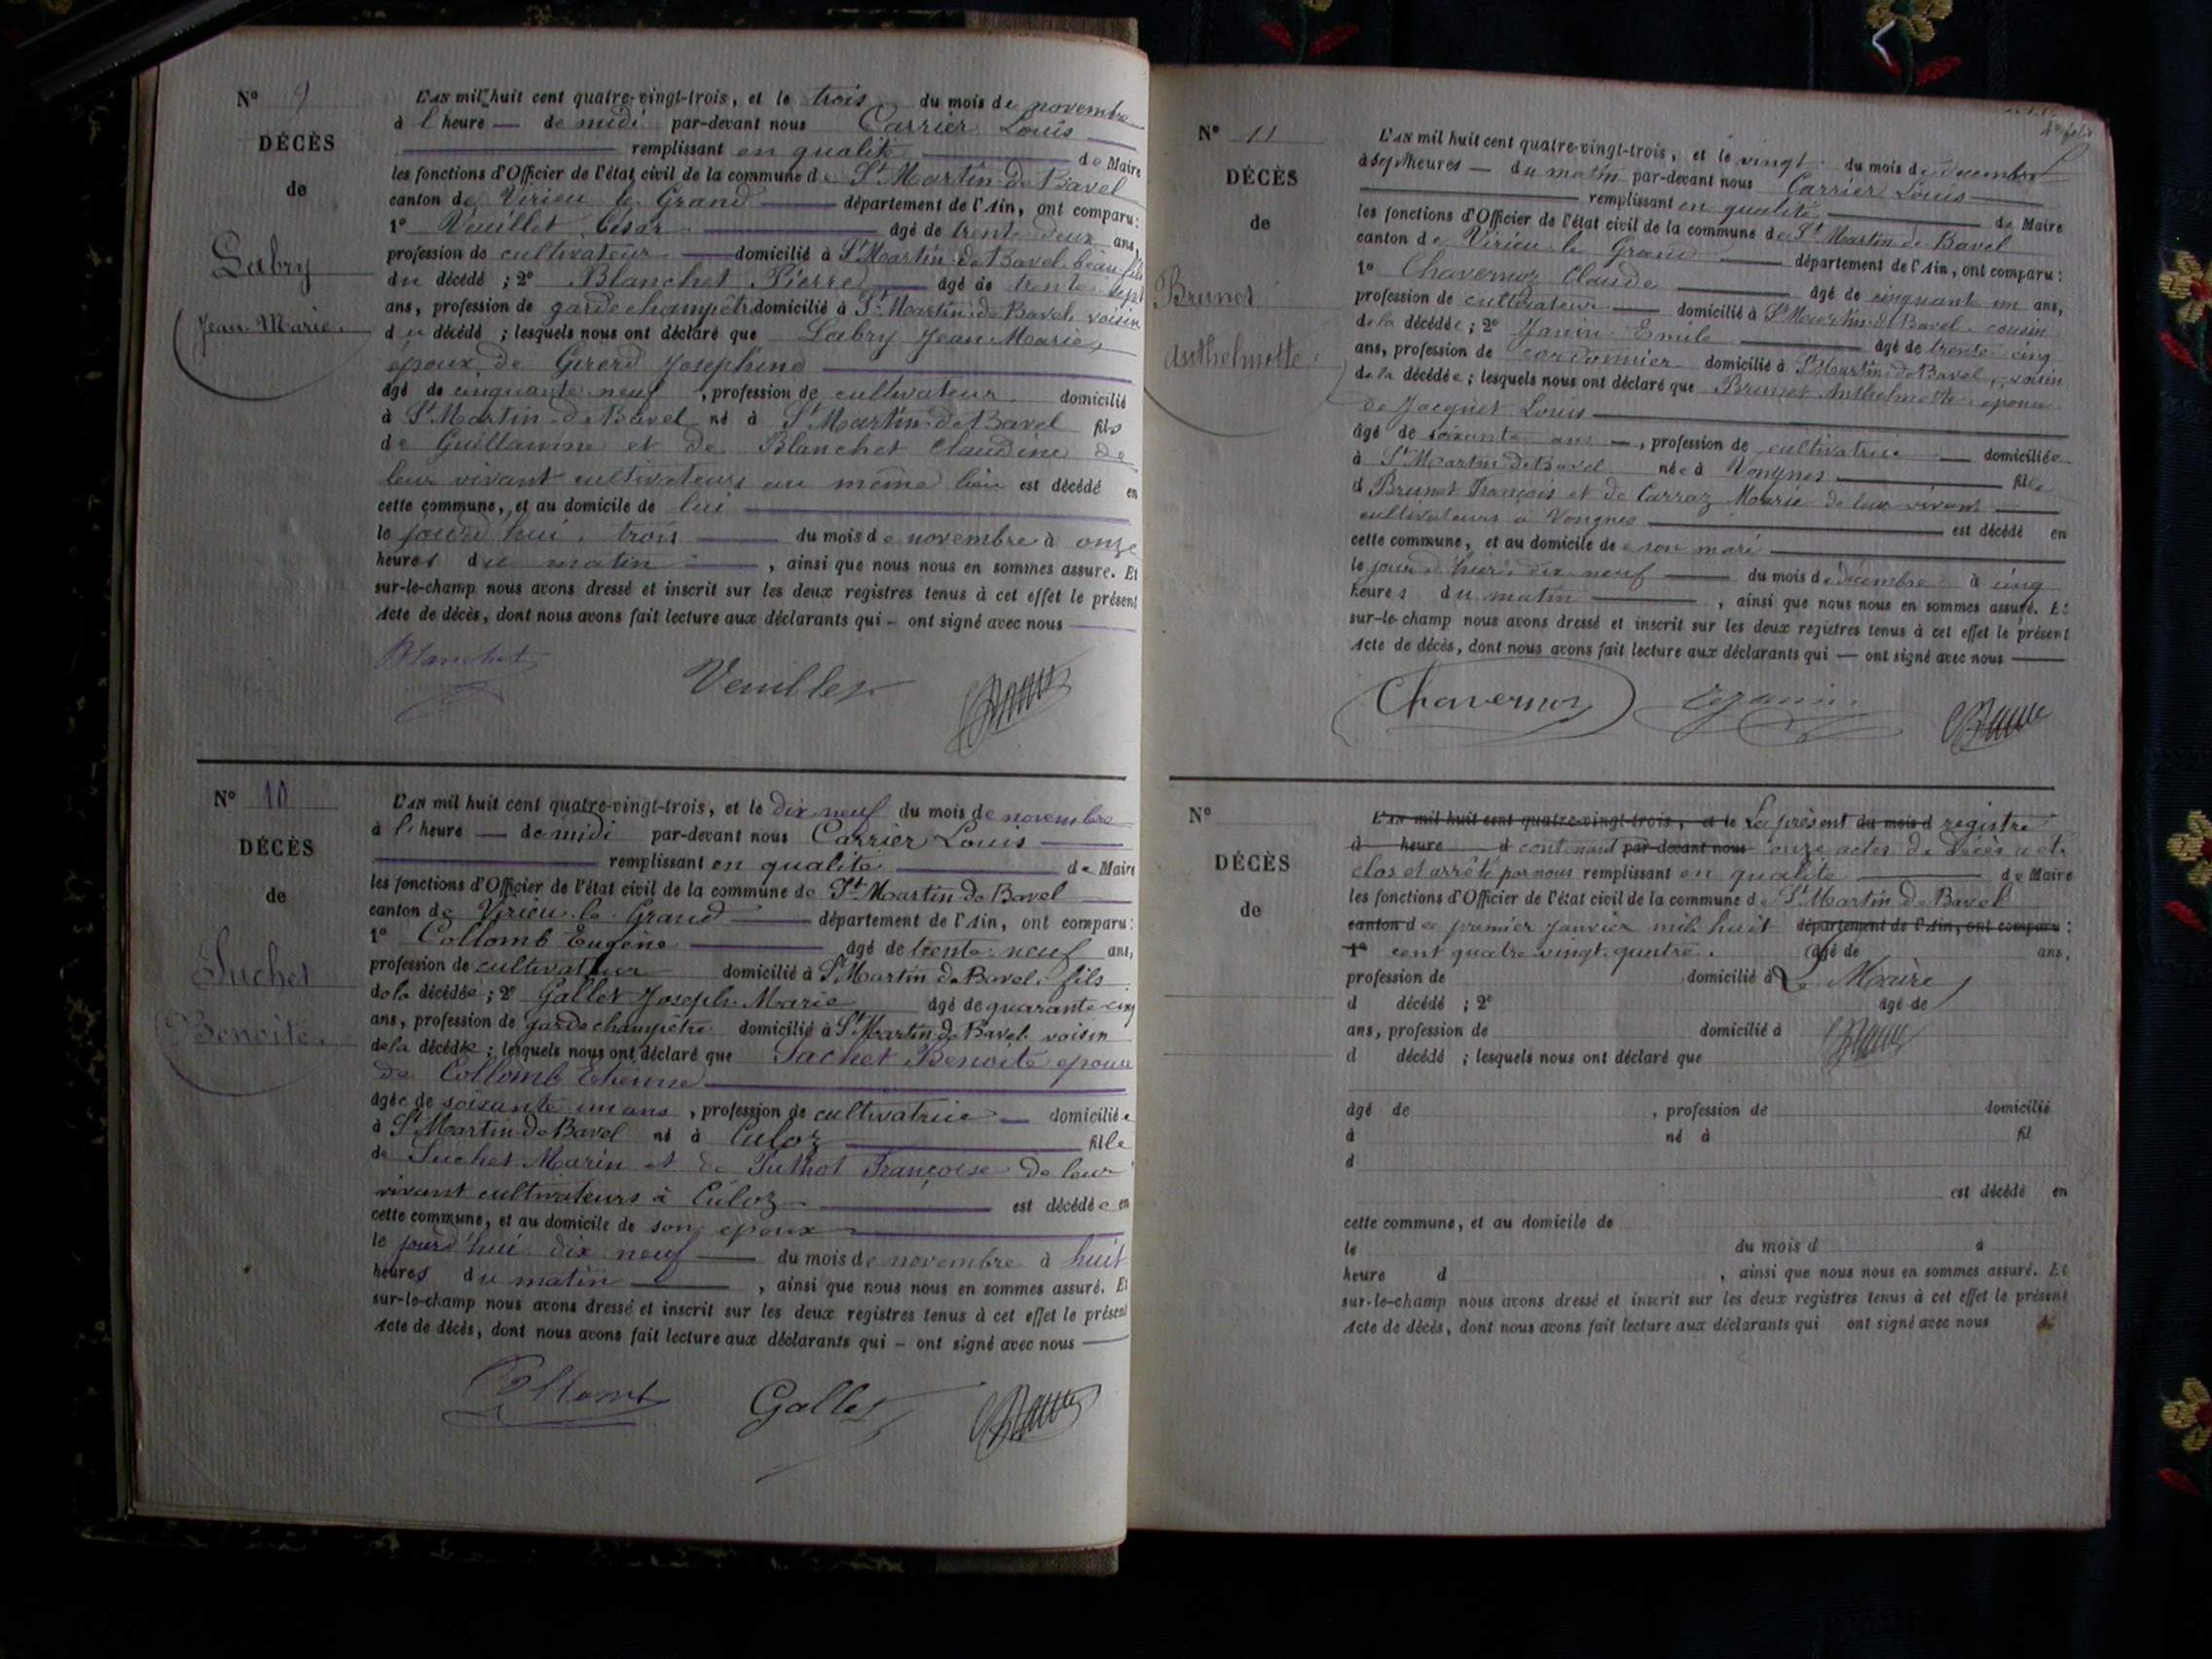 N° 9
DÉCÈS
de
Labry
Jean Marie
L'AN mil huit cent quatre-vingt-trois, et le trois du mois de novembre
à l'heure — de midi par-devant nous Carrier Louis
remplissant en qualité de Maire
les fonctions d'Officier de l'état civil de la commune de St Martin de Bavel
canton de Virieu le Grand département de l'Ain, ont comparu:
1° Veuillet César âgé de trente deux ans,
profession de cultivateur domicilié à St Martin de Bavel beau-fils
du décédé ; 2° Blanchet Pierre âgé de trente sept
ans, profession de garde champêtre domicilié à St Martin de Bavel voisin
du décédé ; lesquels nous ont déclaré que Labry Jean Marie,
époux de Girerd Josephine
âgé de cinquante neuf , profession de cultivateur domicilié
à St Martin de Bavel né à St Martin de Bavel fils
de Guillaume et de Blanchet Claudine de
leur vivant cultivateurs au même lieu est décédé en
cette commune, et au domicile de lui
le jourd'hui trois du mois de novembre à onze
heures du matin , ainsi que nous nous en sommes assuré. Et
sur-le-champ nous avons dressé et inscrit sur les deux registres tenus à cet effet le présent
Acte de décès, dont nous avons fait lecture aux déclarants qui – ont signé avec nous
Blanchet Veuillet
N° 10
DÉCÈS
de
Suchet
Benoite
L'AN mil huit cent quatre-vingt-trois, et le dix neuf du mois de novembre
à l'heure — de midi par-devant nous Carrier Louis
remplissant en qualité de Maire
les fonctions d'Officier de l'état civil de la commune de St Martin de Bavel
canton de Virieu le Grand département de l'Ain, ont comparu:
1° Collomb Eugène âgé de trente neuf ans,
profession de cultivateur domicilié à St Martin de Bavel fils
de la décédée ; 2° Gallet Joseph Marie âgé de quarante cinq
ans, profession de garde champêtre domicilié à St Martin de Bavel voisin
de la décédée ; lesquels nous ont déclaré que Suchet Benoite epouse
de Collomb Etienne
âgée de soixante un ans , profession de cultivatrice domiciliée
à St Martin de Bavel né à Culoz fille
de Suchet Marin et de Françoise de leur
vivant cultivateurs à Culoz est décédée en
cette commune, et au domicile de son epoux
le jourd'hui dix neuf du mois de novembre à huit
heures du matin , ainsi que nous nous en sommes assuré. Et
sur-le-champ nous avons dressé et inscrit sur les deux registres tenus à cet effet le présent
Acte de décès, dont nous avons fait lecture aux déclarants qui – ont signé avec nous
Collomb Gallet
N° 11
DÉCÈS
de
Brunet
Anthelmette
L'AN mil huit cent quatre-vingt-trois, et le vingt du mois de decembre
à sept heures — du matin par-devant nous Carrier Louis
remplissant en qualité de Maire
les fonctions d'Officier de l'état civil de la commune de St Martin de Bavel
canton de Virieu le Grand département de l'Ain, ont comparu :
1° Chavernoz Claude âgé de cinquante un ans,
profession de cultivateur domicilié à St Martin de Bavel cousin
de la décédée ; 2° Janin Emile âgé de trente cinq
ans, profession de cordonnier domicilié à St Martin de Bavel, voisin
de la décédée ; lesquels nous ont déclaré que Brunet Anthelmette epouse
de Jacquet Louis
âgé de soixante ans , profession de cultivatrice domiciliée
à St Martin de Bavel née à Vongnes fille
d Brunet François et de Carraz Marie de leur vivant
cultivateurs à Vongnes est décédé en
cette commune, et au domicile de son mari
le jour d'hier dix neuf du mois de décembre à cinq
heures du matin , ainsi que nous nous en sommes assuré. Et
sur-le-champ nous avons dressé et inscrit sur les deux registres tenus à cet effet le présent
Acte de décès, dont nous avons fait lecture aux déclarants qui — ont signé avec nous
Chavernoz E Janin
N°
DÉCÈS
de
L'AN mil huit cent quatre-vingt-trois, et le Le présent du mois d registre
à heure d contenant par-devant nous onze actes de décès a été
clos et arrêté par nous remplissant en qualité de Maire
les fonctions d'Officier de l'état civil de la commune de St Martin de Bavel
canton d ce premier janvier mil huit département de l'Ain, ont comparu :
1° cent quatre vingt quatre. âgé de ans,
profession de domicilié à Le Maire
d décédé ; 2° âgé de
ans, profession de domicilié à
d décédé ; lesquels nous ont déclaré que
âgé de , profession de domicilié
à né à fil
d
est décédé en
cette commune, et au domicile de
le du mois d à
heure d , ainsi que nous nous en sommes assuré. Et
sur-le-champ nous avons dressé et inscrit sur les deux registres tenus à cet effet le présent
Acte de décès, dont nous avons fait lecture aux déclarants qui ont signé avec nous